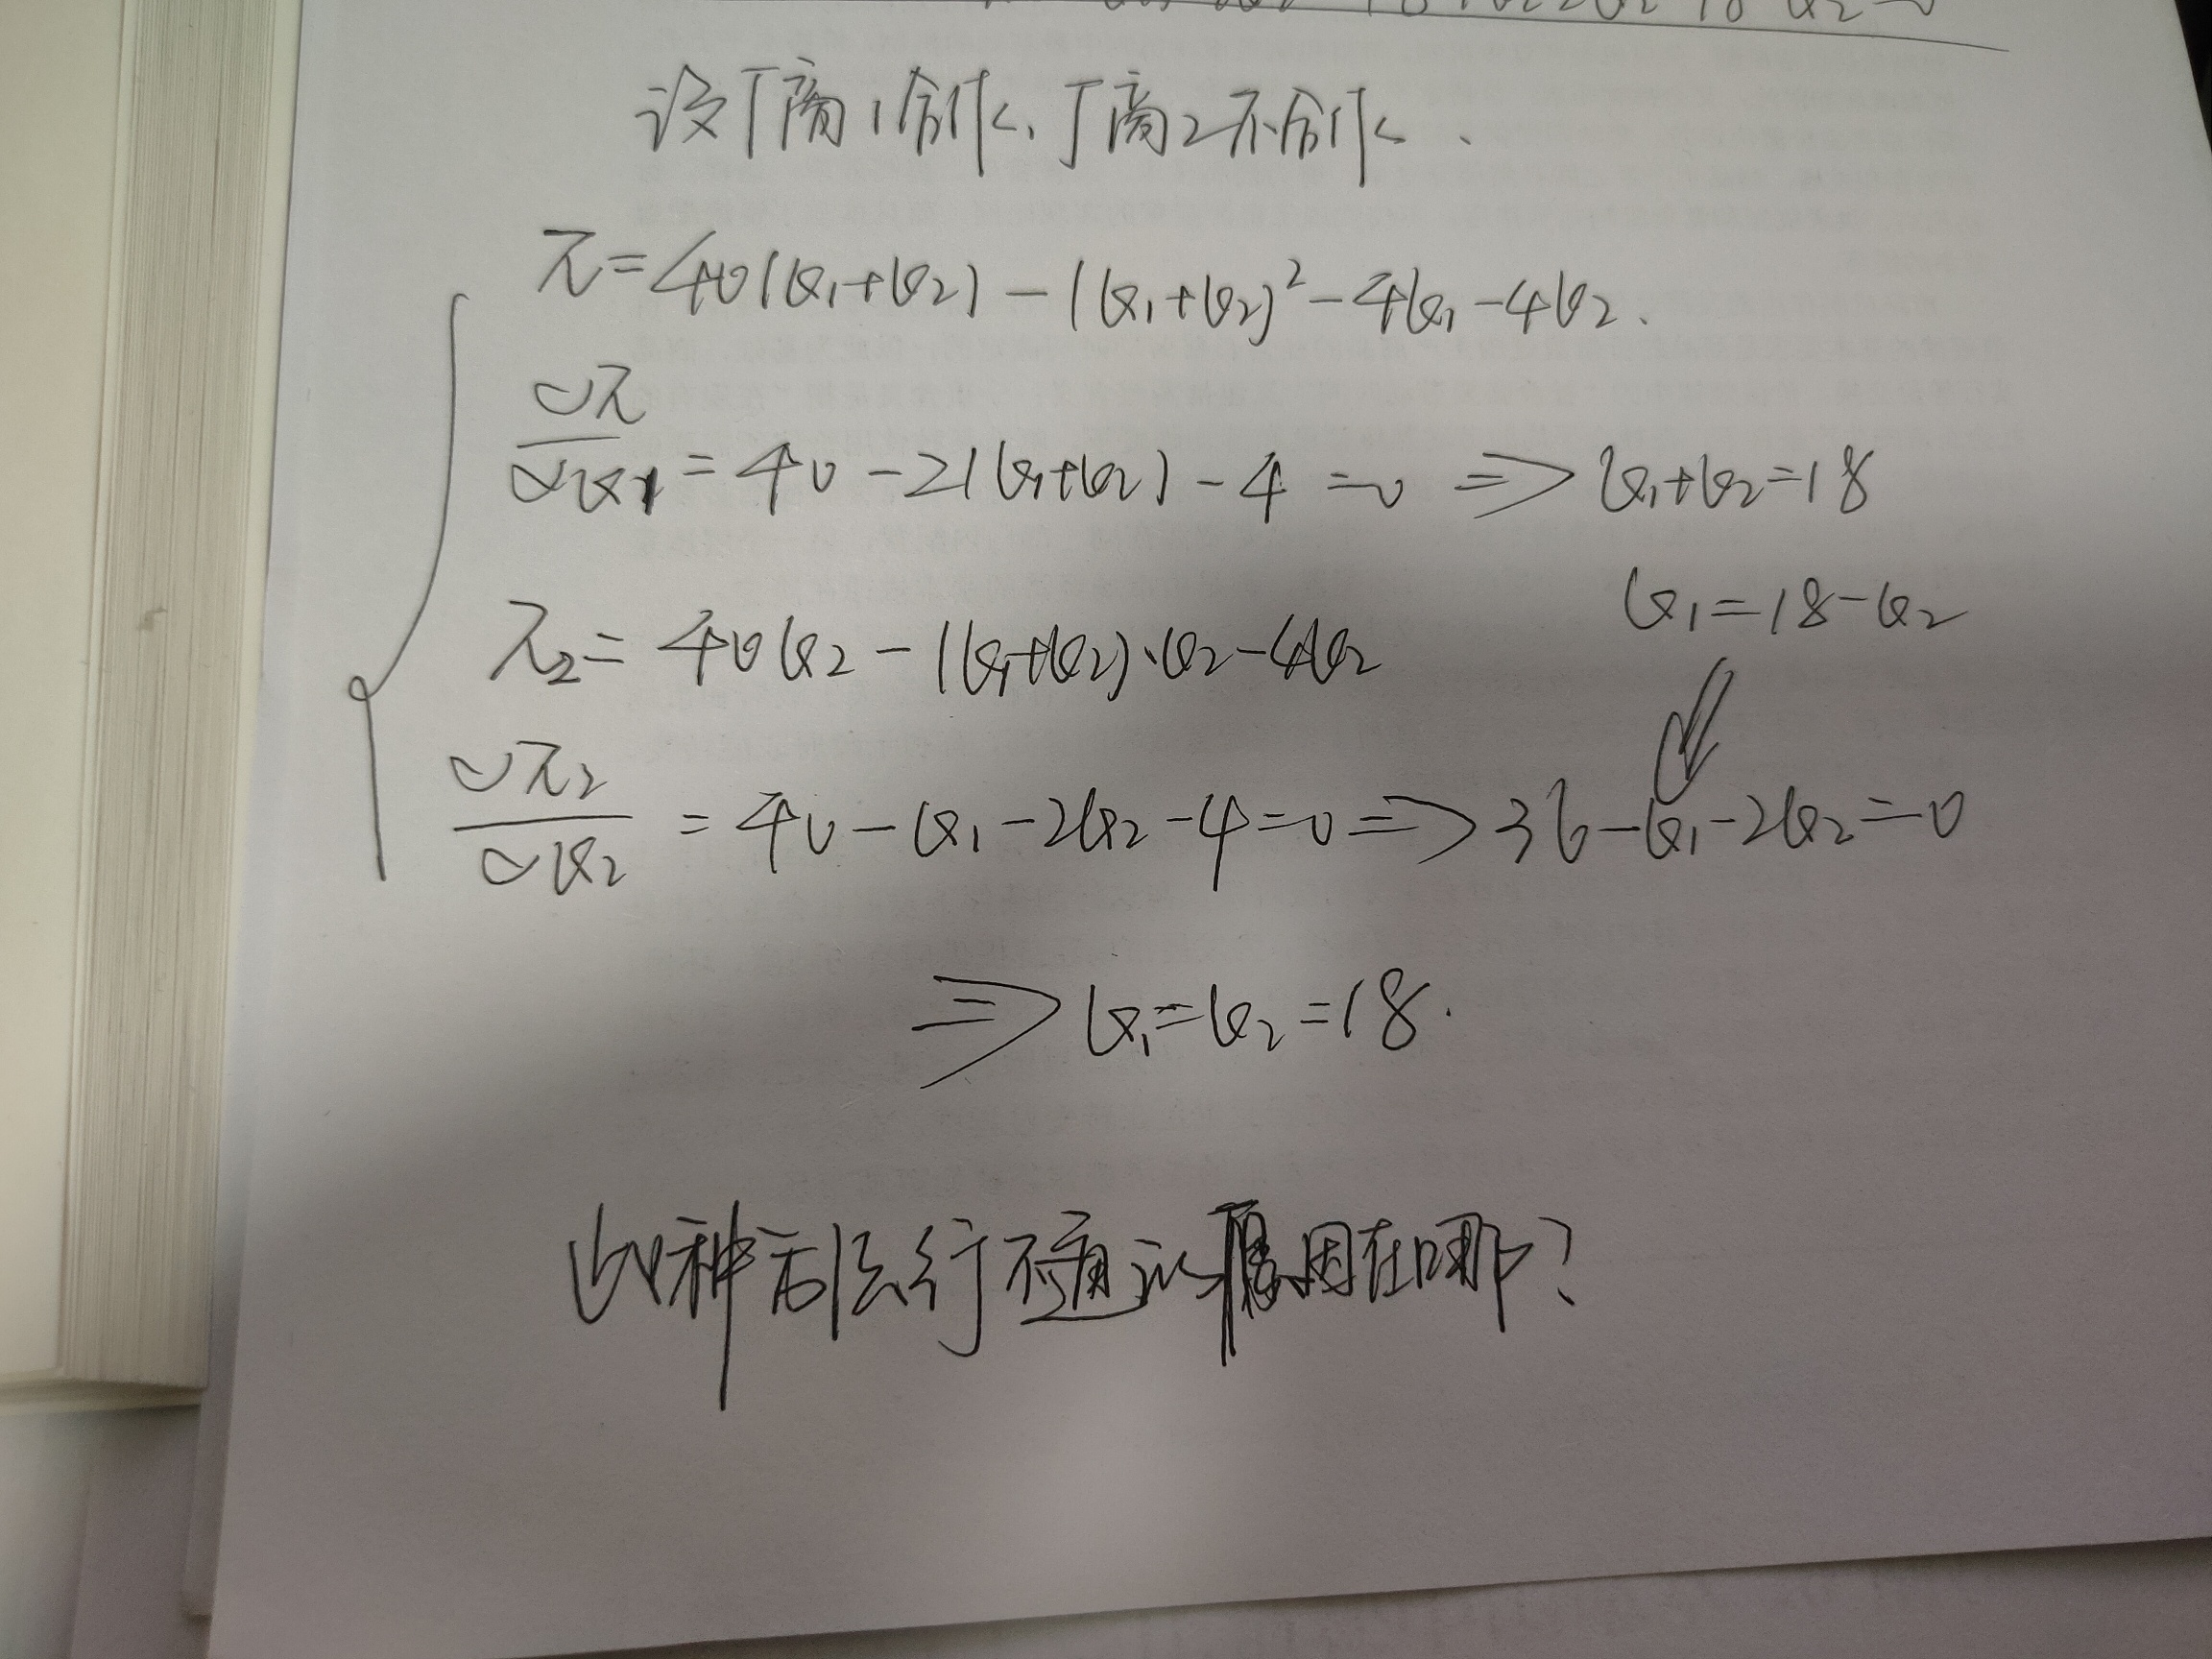 设厂商1合作、厂商2不合作.
π=40(Q₁+Q₂)-(Q₁+Q₂)²-4Q₁-4Q₂.
∂π/∂Q₁=40-2(Q₁+Q₂)-4=0⇒Q₁+Q₂=18
Q₁=18-Q₂
π₂=40Q₂-(Q₁+Q₂)·Q₂-4Q₂
∂π₂/∂Q₂=40-Q₁-2Q₂-4=0⇒36-Q₁-2Q₂=0
⇒Q₁=Q₂=18.
此种方法行不通的原因在哪?